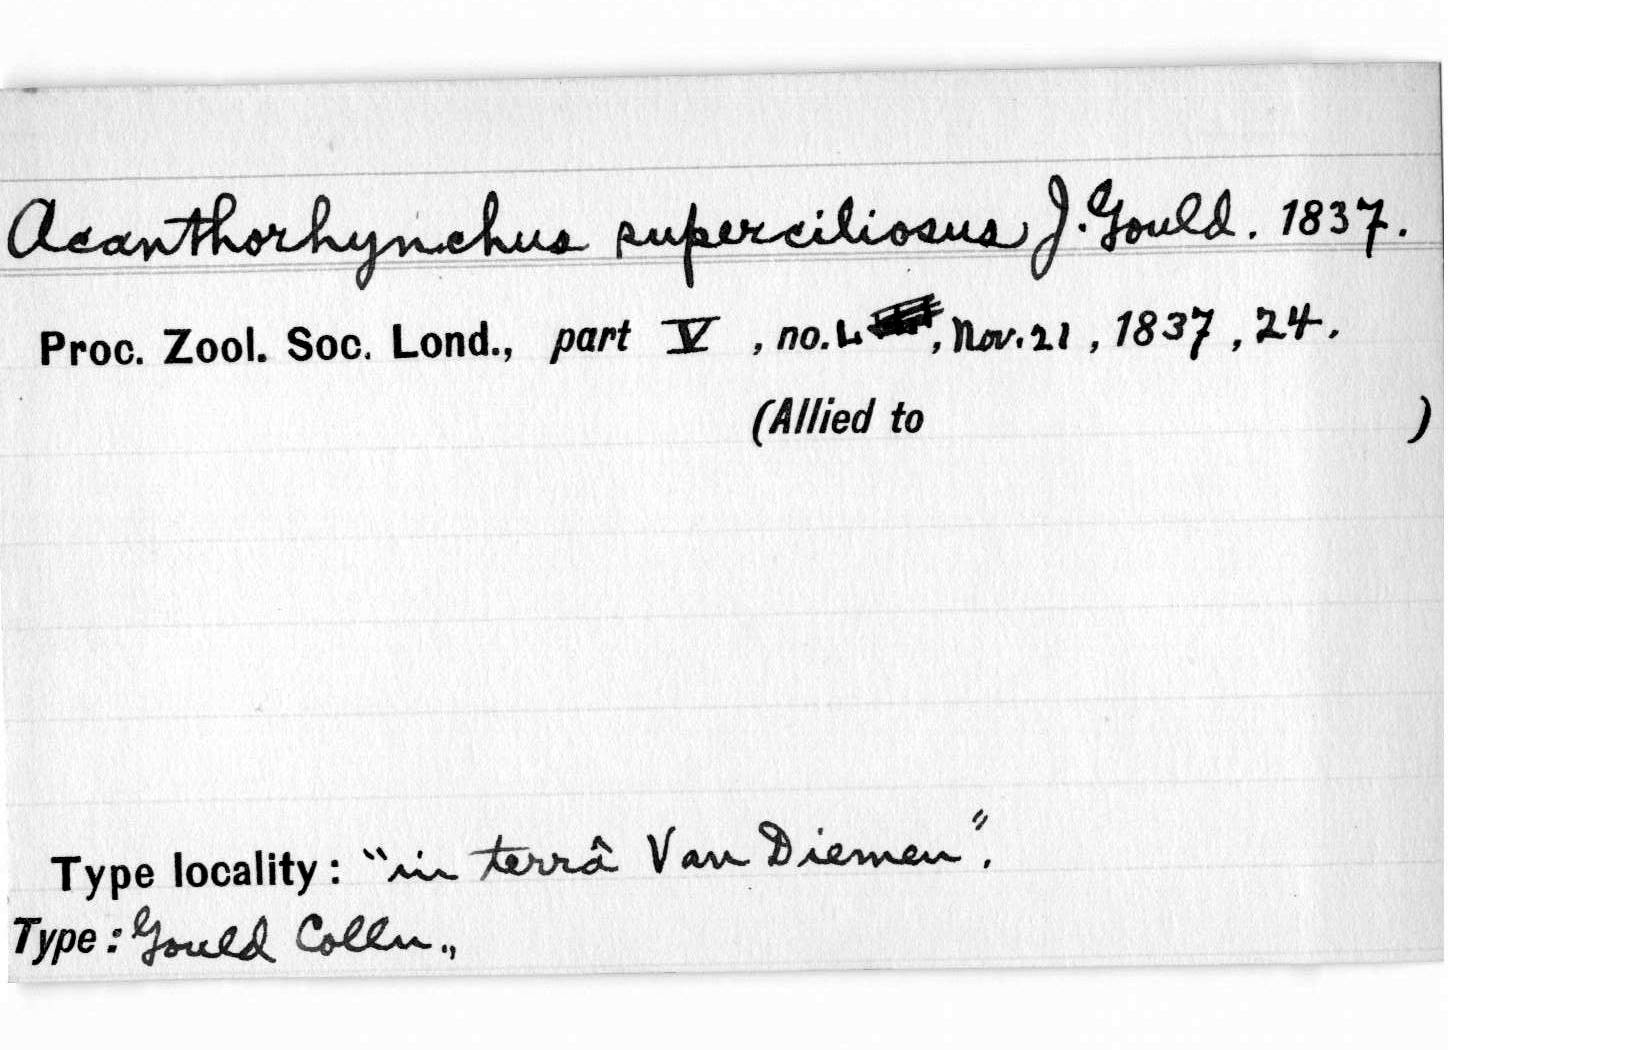 Acanthorhynchus superciliosus J. Gould. 1837.
Proc. Zool. Soc. Lond., part V, no. L, Nov. 21, 1837, 24.
(Allied to )
Type locality: "in terrâ Van Diemen".
Type: Gould Colln.,